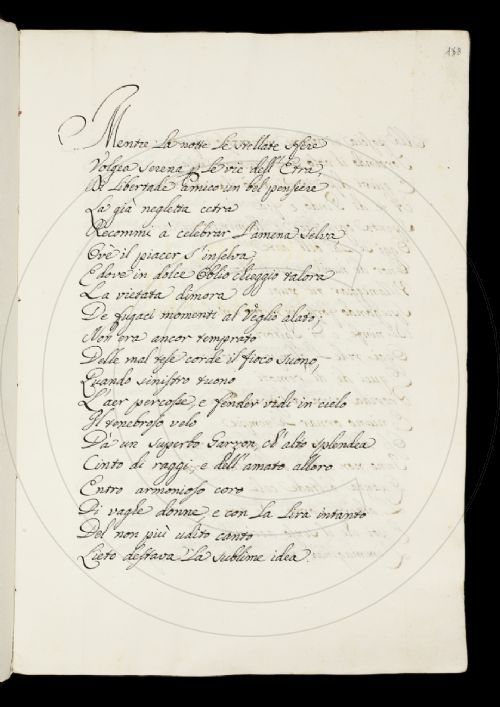 188
Mentre la notte le stellate sfere
Volgea serena p le vie dell'Etra,
Di libertade amico un bel pensiere
La già negletta cetra
Recommi à celebrar l'amena selva,
Ov'è il piacer s'inselva
E dove in dolce oblio chieggio talora
La vietata dimora
De fugaci momenti al Veglio alato;
Non era ancor temprato
Delle mal tese corde il fioco suono,
Quando sinistro tuono
L'aer percosse, e fender vidi in cielo
Il tenebroso velo
Da un superbo Garzon, ch'alto splendea
Cinto di raggi, e dell'amato alloro
Entro armonioso coro
Di vaghe donne, e con la lira intanto
Del non più udito canto
Lieto destava la sublime idea.